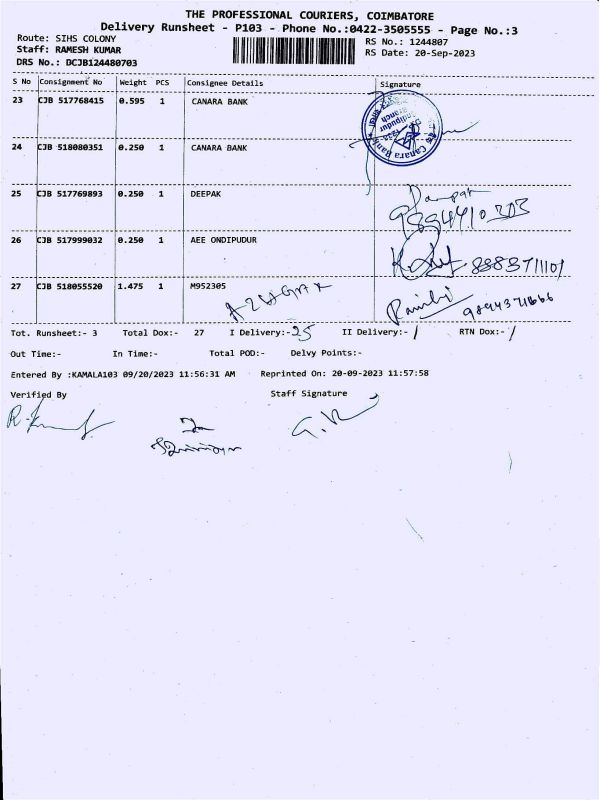 THE PROFESSIONAL COURIERS, COIMBATORE
Delivery Runsheet - P103 - Phone No.:0422-3505555 - Page No.:3
Route: SIHS COLONY
RS No.: 1244807
Staff: RAMESH KUMAR
RS Date: 20-Sep-2023
DRS No.: DCJB124480703
S No Consignment No Weight PCS Consignee Details Signature
23 CJB 517768415 0.595 1 CANARA BANK
Canara Bank
24 CJB 518080351 0.250 1 CANARA BANK
25 CJB 517769893 0.250 1 DEEPAK
26 CJB 517999032 0.250 1 AEE ONDIPUDUR
8883711101
27 CJB 518055520 1.475 1 M952305
9894371666
Tot. Runsheet:- 3 Total Dox:- 27 I Delivery:-25 II Delivery:- / RTN Dox:- /
Out Time:- In Time:- Total POD:- Delvy Points:-
Entered By :KAMALA103 09/20/2023 11:56:31 AM Reprinted On: 20-09-2023 11:57:58
Verified By Staff Signature